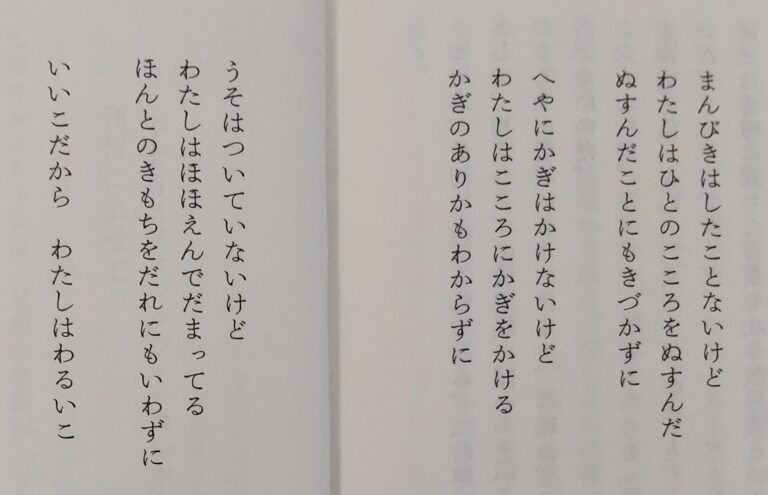 まんびきはしたことないけど
わたしはひとのこころをぬすんだ
ぬすんだことにもきづかずに
へやにかぎはかけないけど
わたしはこころにかぎをかける
かぎのありかもわからずに
うそはついていないけど
わたしはほほえんでだまってる
ほんとのきもちをだれにもいわずに
いいこだから　わたしはわるいこ